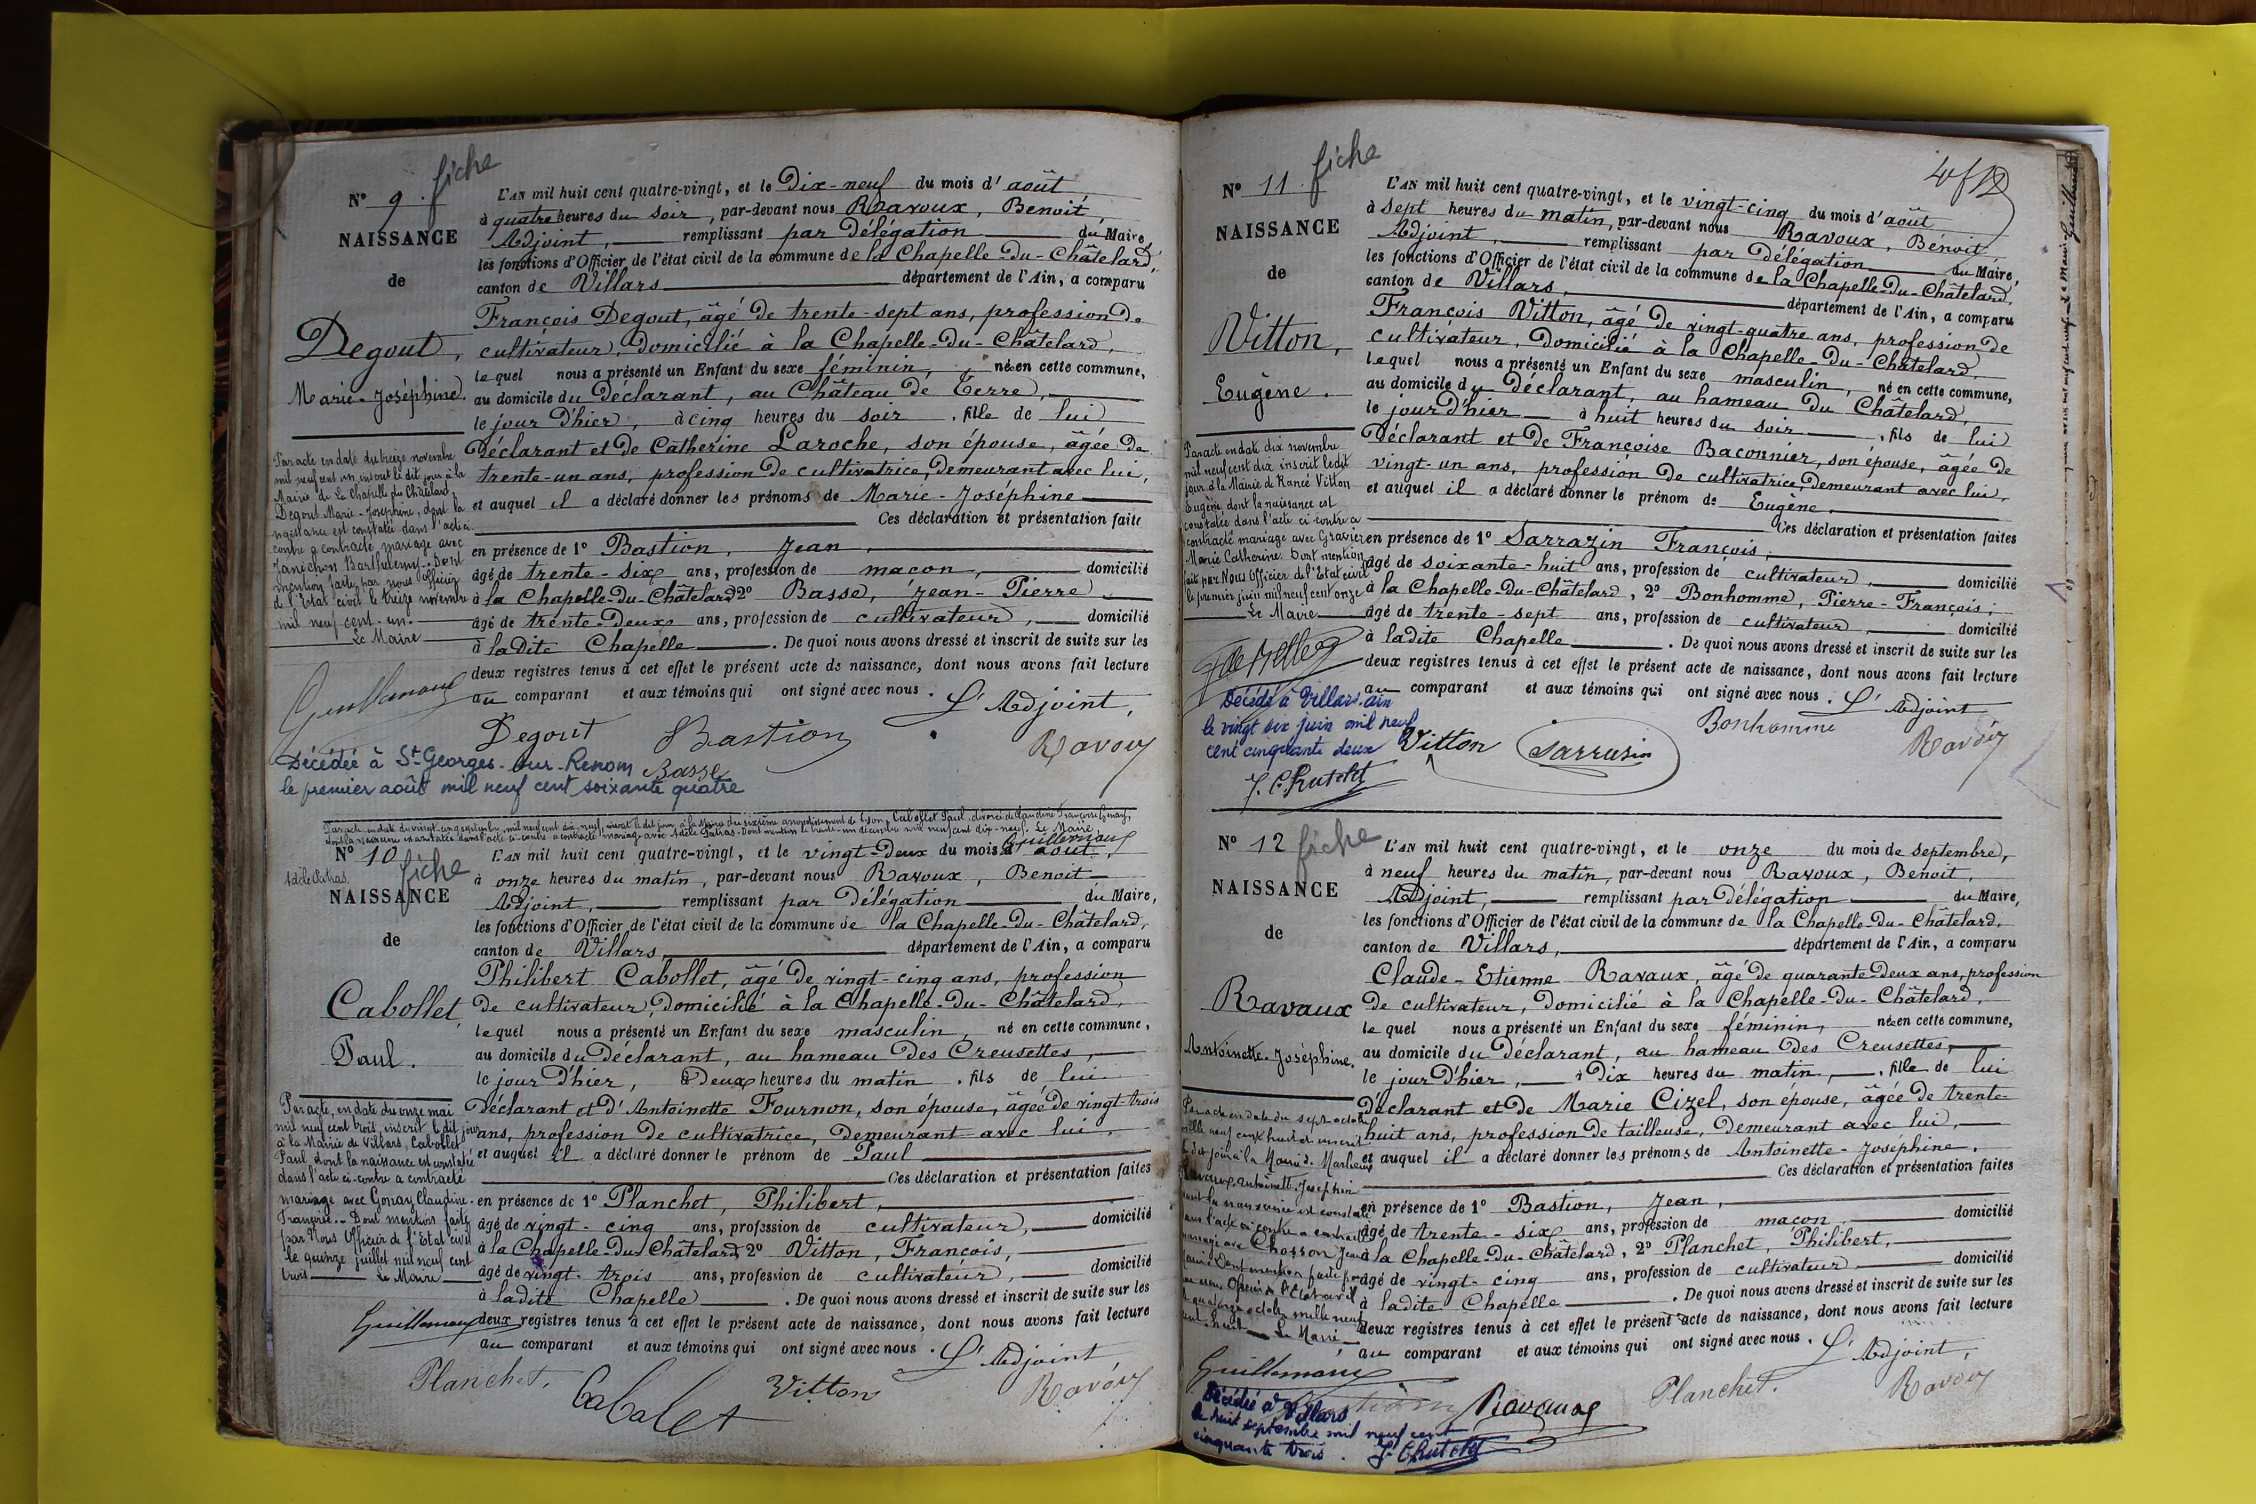 fiche
N° 9.
NAISSANCE
de
Degout,
Marie-Joséphine.
L'AN mil huit cent quatre-vingt, et le Dix-neuf du mois d'août
à quatre heures du soir, par-devant nous Ravoux, Benoit,
Adjoint, remplissant par délégation du Maire,
les fonctions d'Officier de l'état civil de la commune de la Chapelle-du-Châtelard,
canton de Villars département de l'Ain, a comparu
François Degout, âgé de trente-sept ans, profession de
cultivateur, domicilié à la Chapelle-du-Châtelard,
lequel nous a présenté un Enfant du sexe féminin, née en cette commune,
au domicile du déclarant, au Château de Terre,
le jour d'hier, à cinq heures du soir, fille de lui
déclarant et de Catherine Laroche, son épouse, âgée de
trente-un ans, profession de cultivatrice, demeurant avec lui,
et auquel il a déclaré donner les prénoms de Marie-Joséphine
Ces déclaration et présentation faite
en présence de 1° Bastion, Jean,
âgé de trente-six ans, profession de maçon, domicilié
à la Chapelle-du-Châtelard 2° Basse, Jean-Pierre
âgé de trente-deux ans, profession de cultivateur, domicilié
à ladite Chapelle. De quoi nous avons dressé et inscrit de suite sur les
deux registres tenus à cet effet le présent acte de naissance, dont nous avons fait lecture
au comparant et aux témoins qui ont signé avec nous. L'Adjoint,
Degout Bastion Ravoux
Basse
Par acte en date du treize novembre
mil neuf cent un, inscrit le dit jour à la
Mairie de La Chapelle du Châtelard,
Degout Marie-Joséphine, dont la
naissance est constatée dans l'acte ci-
contre a contracté mariage avec
Janichon Barthélemy. Dont
mention faite par nous Officier
de l'Etat civil le treize novembre
mil neuf cent un.
Le Maire
Guillemaud
Décédée à St Georges-sur-Renom
le premier août mil neuf cent soixante quatre
Par acte en date du vingt-cinq septembre, mil neuf cent dix-neuf, inscrit le dit jour à la Mairie du sixième arrondissement de Lyon, Cabollet Paul, divorcé de Claudine Françoise Gonay,
dont la naissance est constatée dans l'acte ci-contre a contracté mariage avec Adèle Patras. Dont mention le trente-un décembre mil neuf cent dix-neuf. Le Maire,
Guillemaud
N° 10 fiche
NAISSANCE
de
Cabollet,
Paul.
L'AN mil huit cent quatre-vingt, et le vingt-deux du mois d'août,
à onze heures du matin, par-devant nous Ravoux, Benoit
Adjoint, remplissant par délégation du Maire,
les fonctions d'Officier de l'état civil de la commune de la Chapelle-du-Châtelard,
canton de Villars département de l'Ain, a comparu
Philibert Cabollet, âgé de vingt-cinq ans, profession
de cultivateur, domicilié à la Chapelle-du-Châtelard,
lequel nous a présenté un Enfant du sexe masculin, né en cette commune,
au domicile du déclarant, au hameau des Creusettes,
le jour d'hier, à deux heures du matin, fils de lui
déclarant et d'Antoinette Fournon, son épouse, âgée de vingt-trois
ans, profession de cultivatrice, demeurant avec lui,
et auquel il a déclaré donner le prénom de Paul
Ces déclaration et présentation faites
en présence de 1° Planchet, Philibert,
âgé de vingt-cinq ans, profession de cultivateur, domicilié
à la Chapelle-du-Châtelard 2° Vitton, François,
âgé de vingt-trois ans, profession de cultivateur, domicilié
à ladite Chapelle. De quoi nous avons dressé et inscrit de suite sur les
deux registres tenus à cet effet le présent acte de naissance, dont nous avons fait lecture
au comparant et aux témoins qui ont signé avec nous. L'Adjoint
Planchet. Cabolet Vitton Ravoux
Par acte, en date du onze mai
mil neuf cent trois, inscrit le dit jour
à la Mairie de Villars, Cabollet
Paul dont la naissance est constatée
dans l'acte ci-contre a contracté
mariage avec Gonay Claudine-
Françoise. Dont mention faite
par Nous Officier de l'Etat civil
le quinze juillet mil neuf cent
trois Le Maire
Guillemaud
N° 11. fiche
NAISSANCE
de
Vitton,
Eugène.
L'AN mil huit cent quatre-vingt, et le vingt-cinq du mois d'août
à sept heures du matin, par-devant nous Ravoux, Bénoit,
Adjoint, remplissant par délégation du Maire,
les fonctions d'Officier de l'état civil de la commune de la Chapelle-du-Châtelard,
canton de Villars, département de l'Ain, a comparu
François Vitton, âgé de vingt-quatre ans, profession de
cultivateur, domicilié à la Chapelle-du-Châtelard,
lequel nous a présenté un Enfant du sexe masculin, né en cette commune,
au domicile du déclarant, au hameau du Châtelard,
le jour d'hier à huit heures du soir, fils de lui
déclarant et de Françoise Baconnier, son épouse, âgée de
vingt-un ans, profession de cultivatrice, demeurant avec lui,
et auquel il a déclaré donner le prénom de Eugène,
Ces déclaration et présentation faites
en présence de 1° Sarrazin François,
âgé de soixante-huit ans, profession de cultivateur, domicilié
à la Chapelle-du-Châtelard, 2° Bonhomme, Pierre-François,
âgé de trente-sept ans, profession de cultivateur, domicilié
à ladite Chapelle. De quoi nous avons dressé et inscrit de suite sur les
deux registres tenus à cet effet le présent acte de naissance, dont nous avons fait lecture
au comparant et aux témoins qui ont signé avec nous. L'Adjoint
Bonhomme
Vitton Sarrasin Ravoux
Par acte en date dix novembre
mil neuf cent dix inscrit ledit
jour à la Mairie de Rancé Vitton
Eugène, dont la naissance est
constatée dans l'acte ci-contre a
contracté mariage avec Gravier
Marie Catherine. Dont mention
faite par Nous Officier de l'Etat civil
le premier juin mil neuf cent onze
Le Maire
Décédé à Villars. Ain
le vingt six juin mil neuf
cent cinquante deux
N° 12 fiche
NAISSANCE
de
Ravaux
Antoinette-Joséphine.
L'AN mil huit cent quatre-vingt, et le onze du mois de septembre,
à neuf heures du matin, par-devant nous Ravoux, Benoit,
Adjoint, remplissant par délégation du Maire,
les fonctions d'Officier de l'état civil de la commune de la Chapelle-du-Châtelard,
canton de Villars, département de l'Ain, a comparu
Claude-Etienne Ravaux, âgé de quarante-deux ans, profession
de cultivateur, domicilié à la Chapelle-du-Châtelard,
lequel nous a présenté un Enfant du sexe féminin, née en cette commune,
au domicile du déclarant, au hameau des Creusettes,
le jour d'hier, à dix heures du matin, fille de lui
déclarant et de Marie Cizel, son épouse, âgée de trente-
huit ans, profession de tailleuse, demeurant avec lui,
et auquel il a déclaré donner les prénoms de Antoinette-Joséphine,
Ces déclaration et présentation faites
en présence de 1° Bastion, Jean,
âgé de trente-six ans, profession de maçon domicilié
à la Chapelle-du-Châtelard, 2° Planchet, Philibert,
âgé de vingt-cinq ans, profession de cultivateur domicilié
à ladite Chapelle. De quoi nous avons dressé et inscrit de suite sur les
deux registres tenus à cet effet le présent acte de naissance, dont nous avons fait lecture
au comparant et aux témoins qui ont signé avec nous. L'Adjoint,
Bastion Ravaux Planchet. Ravoux
Par acte en date du sept octobre
mille neuf cent huit et inscrit
le dit jour à la Mairie de Marlieux
Ravaux Antoinette Joséphine
dont la naissance est constatée
dans l'acte ci contre a contracté
mariage avec Chosson Jean
Dont mention faite par
nous Officier de l'Etat civil
le quatorze octobre mille neuf
cent huit Le Maire
Guillemaud
Décédée à Villars
le huit septembre mil neuf cent
cinquante trois.